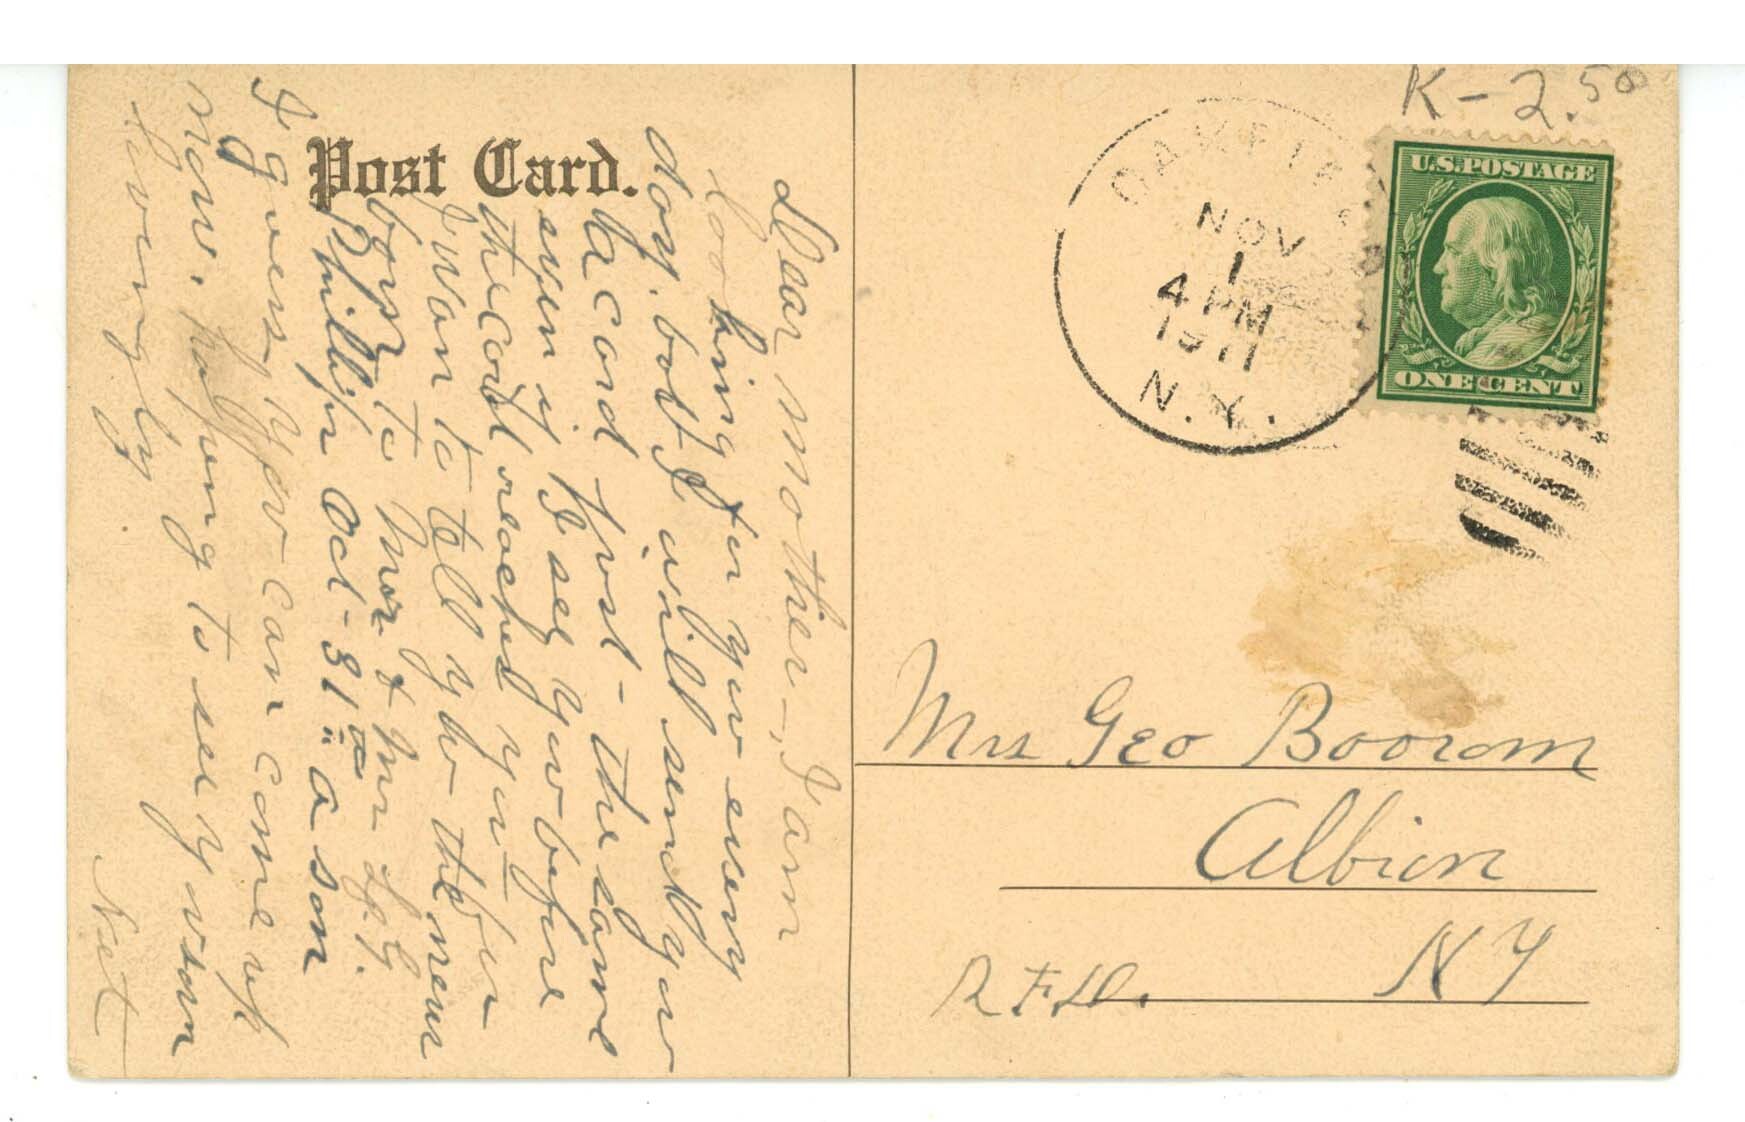 Post Card.
Dear Mother—, I am
looking for you every
day. but I will send you
a card just - the same
even if I see you before
the card reached you— for
I wan to tell you the news
born to Mor & Mrs L. G.
Phillips Oct - 31st a son
I guess you can come up
now. hoping to see you soon
Lovingly
Net
K-2.50
OAKFIE
NOV
1
4 PM
1911
N.Y.
U.S. POSTAGE
ONE CENT
Mrs Geo Boorom
Albion
N Y
R.F.D.